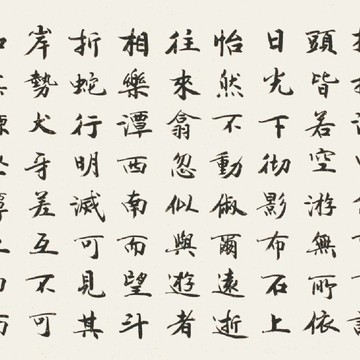 頭皆若空游無所依
日光下彻影布石上
怡然不動俶爾遠逝
往來翕忽似與遊者
相樂潭西南而望斗
折蛇行明滅可見其
岸勢犬牙差互不可